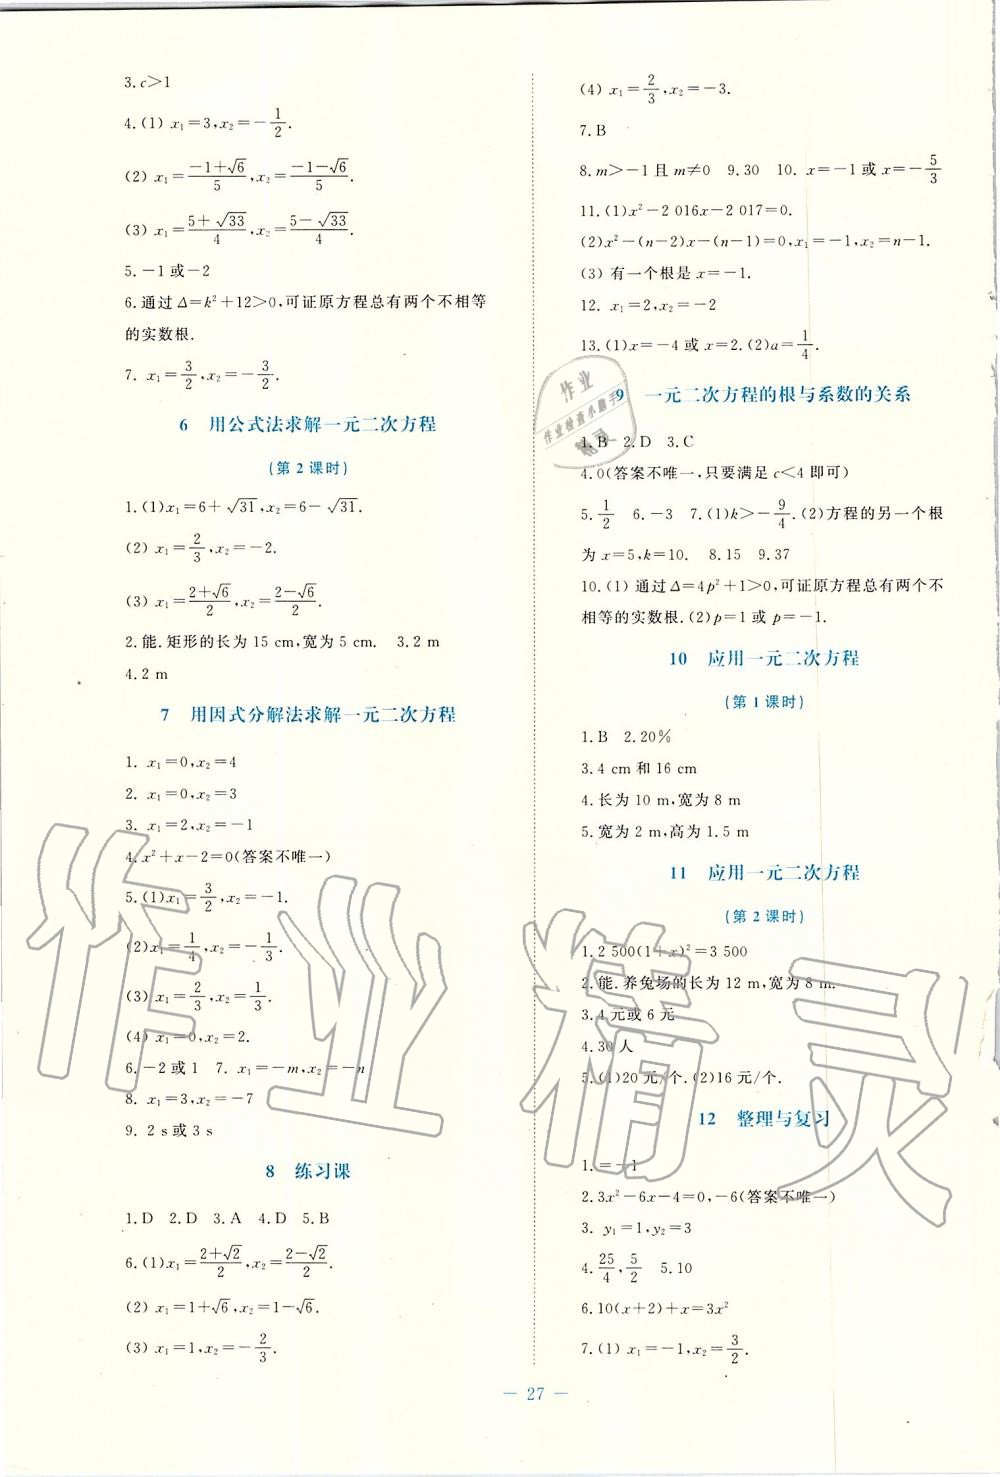 3.c>1
4.(1) x₁=3,x₂=-1/2.
(2) x₁=(-1+√6)/5,x₂=(-1-√6)/5.
(3) x₁=(5+√33)/4,x₂=(5-√33)/4.
5.-1或-2
6.通过Δ=k²+12>0,可证原方程总有两个不相等
的实数根.
7. x₁=3/2,x₂=-3/2.
6 用公式法求解一元二次方程
(第2课时)
1.(1)x₁=6+√31,x₂=6-√31.
(2) x₁=2/3,x₂=-2.
(3) x₁=(2+√6)/2,x₂=(2-√6)/2.
2.能.矩形的长为15 cm,宽为5 cm. 3.2 m
4.2 m
7 用因式分解法求解一元二次方程
1. x₁=0,x₂=4
2. x₁=0,x₂=3
3. x₁=2,x₂=-1
4.x²+x-2=0(答案不唯一)
5.(1)x₁=3/2,x₂=-1.
(2)x₁=1/4,x₂=-1/3.
(3) x₁=2/3,x₂=1/3.
(4) x₁=0,x₂=2.
6.-2或1 7. x₁=-m,x₂=-n
8. x₁=3,x₂=-7
9. 2 s或3 s
8 练习课
1.D 2.D 3.A 4.D 5.B
6.(1)x₁=(2+√2)/2,x₂=(2-√2)/2.
(2) x₁=1+√6,x₂=1-√6.
(3) x₁=1,x₂=-2/3.
(4) x₁=2/3,x₂=-3.
7.B
8.m>-1且m≠0 9.30 10. x=-1或x=-5/3
11.(1)x²-2 016x-2 017=0.
(2)x²-(n-2)x-(n-1)=0,x₁=-1,x₂=n-1.
(3) 有一个根是x=-1.
12. x₁=2,x₂=-2
13.(1)x=-4或x=2.(2)a=1/4.
9 一元二次方程的根与系数的关系
1.B 2.D 3.C
4.0(答案不唯一,只要满足c<4即可)
5.1/2 6.-3 7.(1)k>-9/4.(2)方程的另一个根
为x=5,k=10. 8.15 9.37
10.(1) 通过Δ=4p²+1>0,可证原方程总有两个不
相等的实数根.(2)p=1或p=-1.
10 应用一元二次方程
(第1课时)
1.B 2.20%
3.4 cm和16 cm
4.长为10 m,宽为8 m
5.宽为2 m,高为1.5 m
11 应用一元二次方程
(第2课时)
1.2 500(1+x)²=3 500
2.能.养兔场的长为12 m,宽为8 m.
3.4元或6元
4.30人
5.(1)20元/个.(2)16元/个.
12 整理与复习
1.=-1
2.3x²-6x-4=0,-6(答案不唯一)
3. y₁=1,y₂=3
4.25/4,5/2 5.10
6.10(x+2)+x=3x²
7.(1) x₁=-1,x₂=3/2.
— 27 —
作业精灵
作业
作业检查小助手
精灵